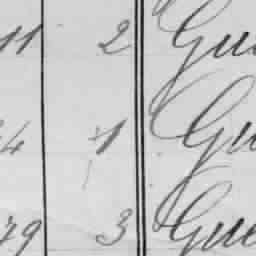 11 2 Gu
4 1 Gu
79 3 Gue